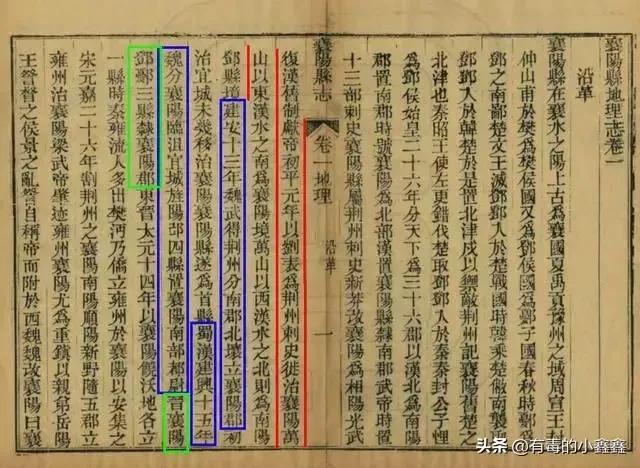 襄陽縣地理志卷一
沿革
襄陽縣在襄水之陽上古為襄國夏禹貢豫州之域周宣王封
仲山甫於樊為樊侯國又為鄧侯國為鄾子國春秋時鄾
鄧之南鄙楚文王滅鄧鄧入於楚戰國時韓乘楚敝南襲
鄧鄧入於韓楚於是置北津戍以禦敵荆州記襄陽舊楚之
北津也秦昭王使左更錯伐楚取鄧鄧入於秦秦封公子悝
為鄧侯始皇二十六年分天下為三十六郡以漢南
郡置南郡時號襄陽為北部漢置襄陽縣隸南郡武帝時置
十三部刺史襄陽縣屬荆州刺史新莽改襄陽為相陽光武
襄陽縣志
卷一地理
沿革
一
復漢舊制獻帝初平元年以劉表為荆州刺史徙治襄陽萬
山以東漢水之南為襄陽境萬山以西漢水之北則為南陽
鄧縣境建安十三年魏武得荆州分南郡北壤立襄陽郡初
治宜城未幾移治襄陽襄陽縣遂為首縣蜀漢建興十五年
魏分襄陽臨沮宜城旍陽邔四縣置襄陽南部都尉晉襄陽
鄧鄾三縣隸襄陽郡東晉太元十四年以襄陽饒沃地各立
一縣時秦雍流人多出樊沔乃僑立雍州於襄陽以安集之
宋元嘉二十六年割荆州之襄陽南陽順陽新野隨五郡立
雍州治襄陽梁武帝肇迹雍州襄陽尤為重鎮以親第岳陽
王詧督之侯景之亂詧自稱帝而附於西魏魏改襄陽曰襄
头条 @有毒的小鑫鑫